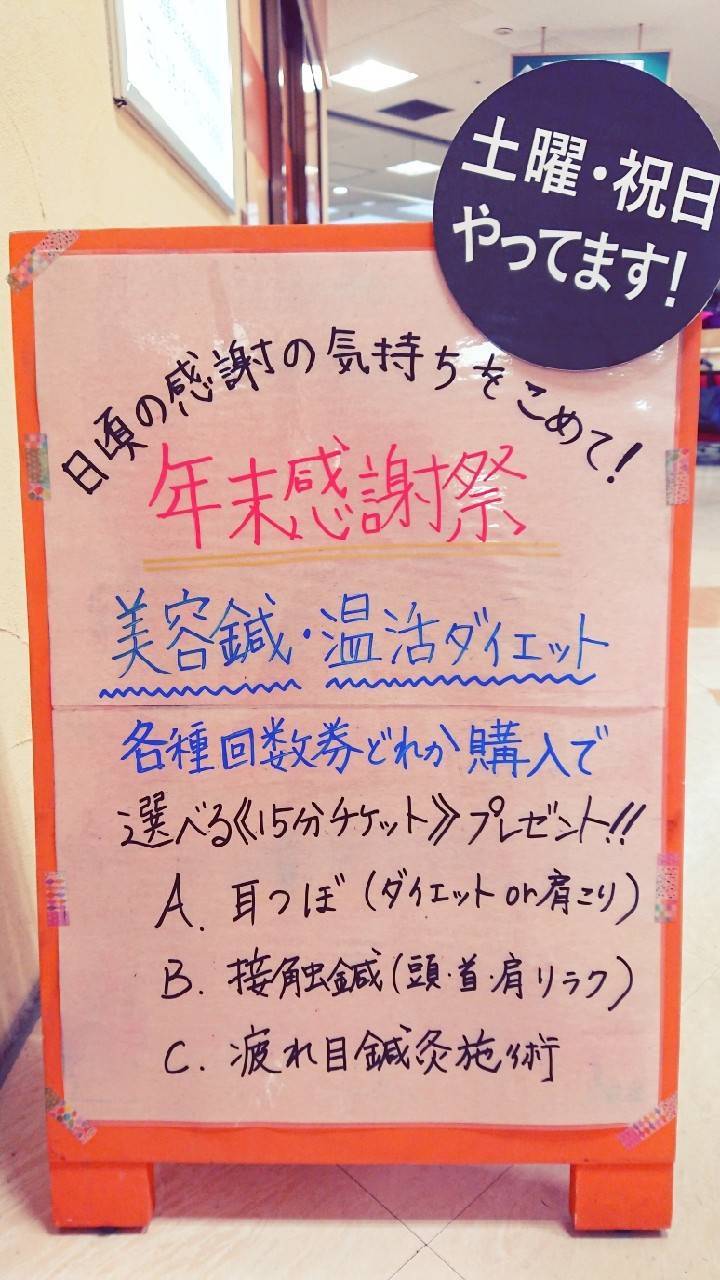 土曜・祝日
やってます!
日頃の感謝の気持ちをこめて!
年末感謝祭
美容鍼・温活ダイエット
各種回数券どれか購入で
選べる《15分チケット》プレゼント!!
A. 耳つぼ(ダイエットor肩こり)
B. 接触鍼(頭・首・肩リラク)
C. 疲れ目鍼灸施術